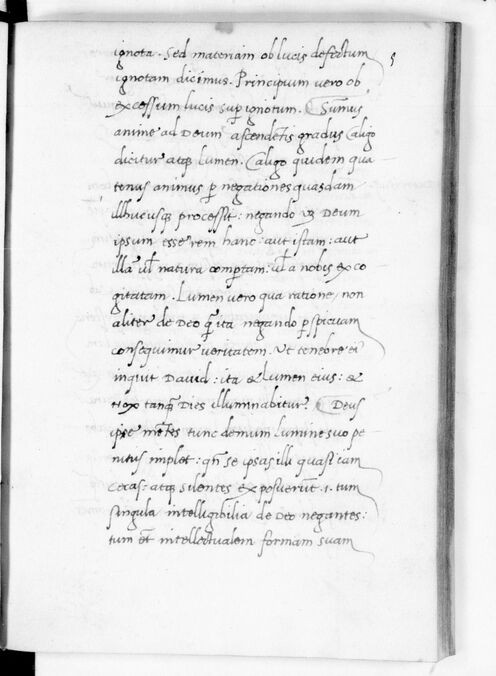 5
ignota. Sed materiam ob lucis defectum
ignotam dicimus. Principium vero ob
excessum lucis sup ignotum. Sumus
anime ad Deum ascendetis gradus Caligo
dicitur atq; lumen. Caligo quidem qua
tenus animus p negationes quasdam
illhucusq; processit: negando Deum
ipsum esse rem hanc: aut istam: aut
illã ul natura comptam: ul a nobis exco
gitatam. Lumen vero qua ratione, non
aliter de Deo q̃ ita negando pspicuam
consequimur veritatem. Ut tenebre ei
inquit David: ita & lumen eius: &
Nox tanq̃ Dies illuminabitur? Deus
ipse mẽtes tunc demum lumine suo pe
nitus implet: qñ se ipsas illi quasi cam
cecas: atq; silentes exposuerũt .1. tum
singula intelligibilia de Deo negantes:
tum et intellectualem formam suam